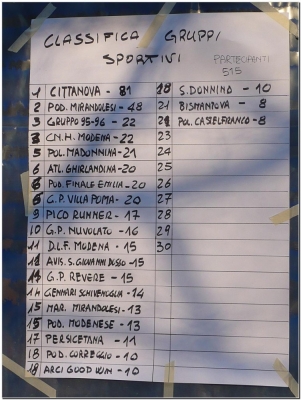 CLASSIFICA GRUPPI
SPORTIVI
PARTECIPANTI
515
1 CITTANOVA - 81
2 POD. MIRANDOLESI - 48
3 GRUPPO 95-96 - 22
3 CN.H. MODENA - 22
5 POL. MADONNINA - 21
6 ATL. GHIRLANDINA - 20
6 POD. FINALE EMILIA - 20
6 G.P. VILLA POMA - 20
9 PICO RUNNER - 17
10 G.P. NUVOLATO - 16
11 D.L.F. MODENA - 15
11 AVIS. S. GIOVANNI DOSSO - 15
11 G.P. REVERE - 15
14 GENNARI SCHIVENOGLIA - 14
15 MAR. MIRANDOLESI - 13
15 POD. MODENESE - 13
17 PERSICETANA - 11
18 POD. CORREGGIO - 10
18 ARCI GOOD WIN - 10
18 S. DONNINO - 10
21 BISMANTOVA - 8
21 POL. CASTELFRANCO - 8
23
24
25
26
27
28
29
30